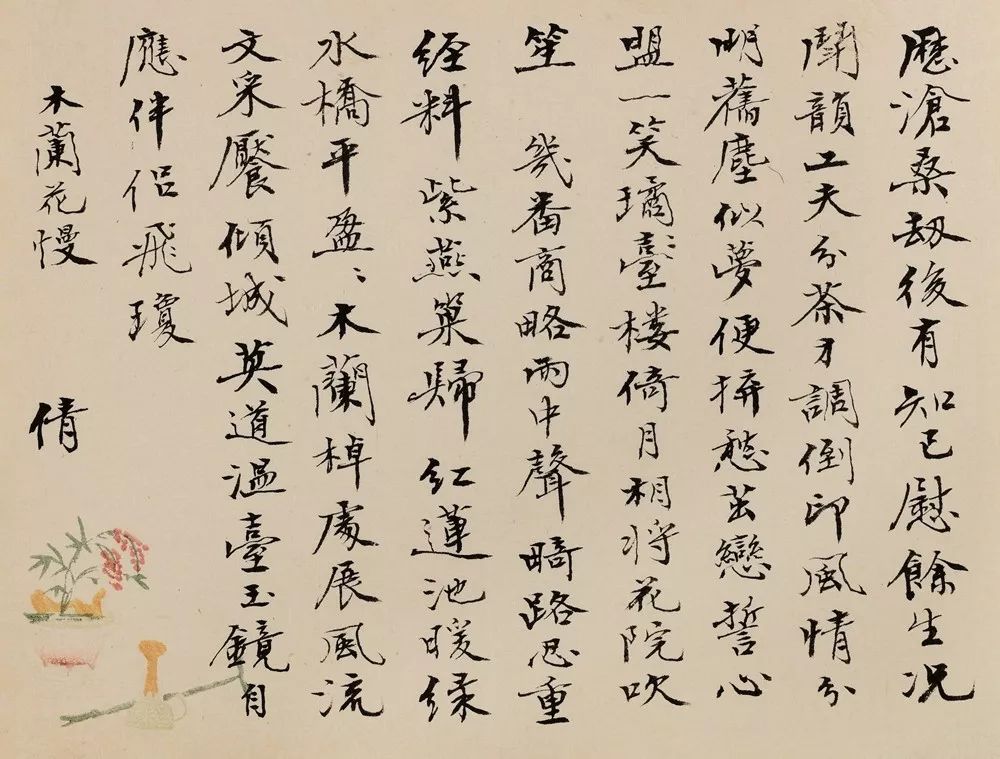 歷滄桑劫後有知己慰餘生況
鬬韻工夫分茶才調倒印風情分
明舊塵似夢便拚愁茁戀誓心
盟一笑璚臺樓倚月相將花院吹
笙　幾番商略雨中聲疇路思重
經料紫燕巢歸紅蓮池暖綠
水橋平盈〻木蘭棹處展風流
文采饜傾城莫道溫臺玉鏡自
應伴侶飛瓊
木蘭花慢　倩